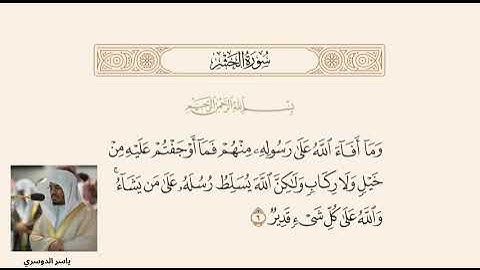 سُورَةُ الحَشْرِ
بِسْمِ اللَّهِ الرَّحْمَنِ الرَّحِيمِ
وَمَآ أَفَآءَ ٱللَّهُ عَلَىٰ رَسُولِهِۦ مِنْهُمْ فَمَآ أَوْجَفْتُمْ عَلَيْهِ مِنْ
خَيْلٍ وَلَا رِكَابٍ وَلَٰكِنَّ ٱللَّهَ يُسَلِّطُ رُسُلَهُۥ عَلَىٰ مَن يَشَآءُ ۚ
وَٱللَّهُ عَلَىٰ كُلِّ شَىْءٍ قَدِيرٌ ٦
ياسر الدوسري